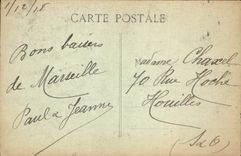 1/12/18
CARTE POSTALE
Bons baisers
de Marseille
Paul & Jeanne
Madame Chaxel
70 Rue Hoche
Houilles
(S&O)